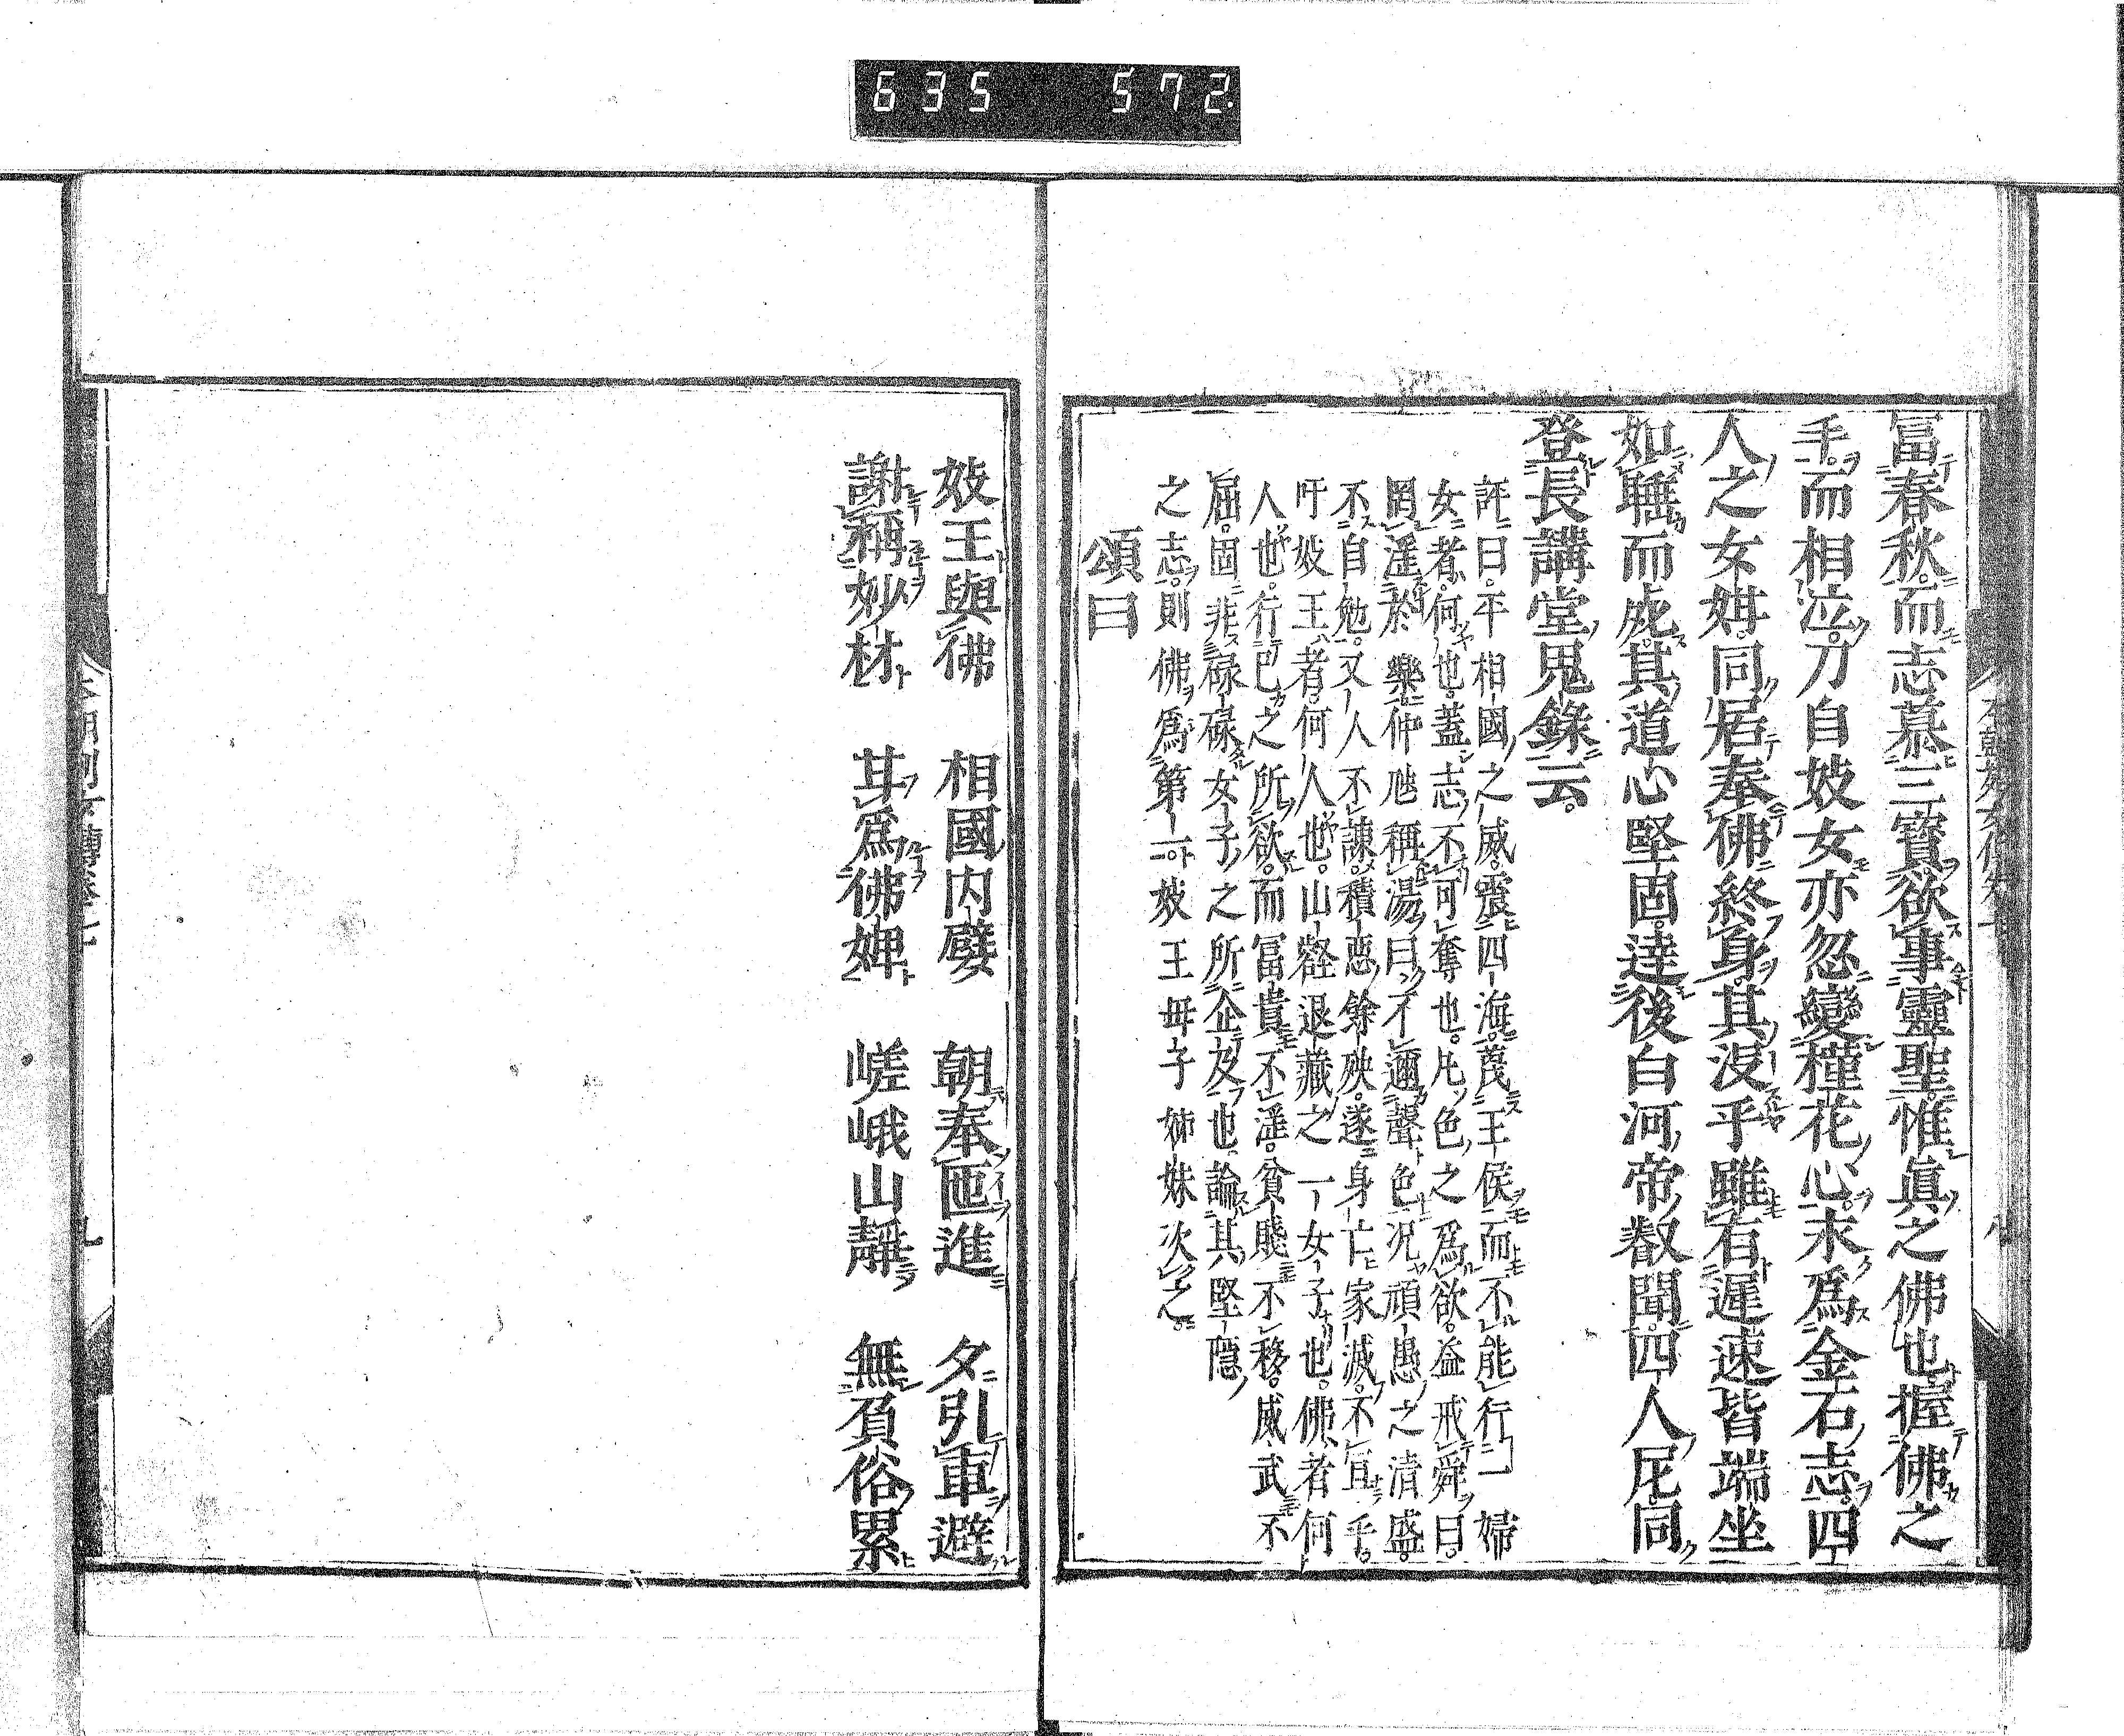 635 572
富春秋而志慕三寶欲事靈聖惟眞之佛也握佛之
手而相泣刀自妓女亦忽變槿花心求爲金石志四
人之女娸同居奉佛終身其沒乎雖右遲速皆端坐
如睡而死其道心堅固達後白河帝叡聞四人尼同
登長講堂鬼錄云
評曰平相國之威震四海蔑王侯而不能行一婦
女者何也蓋志不可奪也凡色之爲欲益戒舜曰
罔淫於樂仲虺稱湯曰不邇聲色況頑愚之清盛
不自勉又人不諫積惡餘殃遂身亡家滅不宜乎
吁妓王者何人也山壑退藏之一女子也佛者何
人也行巴之所欲而冨貴不淫貧賤不移威武不
屈固非碌碌女子之所企及也論其堅隱
之志則佛爲第一妓王母子姉妹次之
頌曰
妓王與佛 相國内嬖 朝奉匜進 夕引車避
謝稱妙材 甘爲佛婢 嵯峨山靜 無負俗累